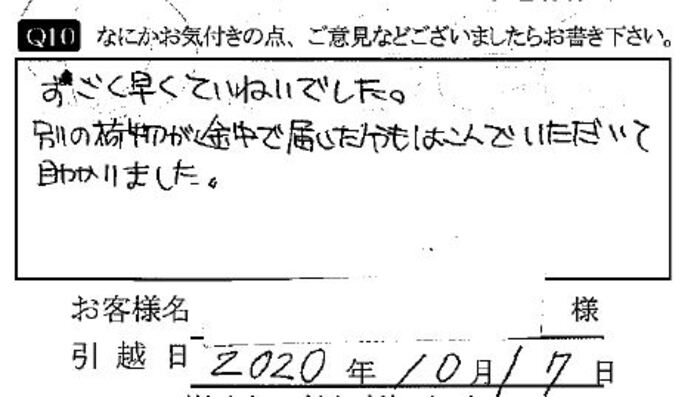 Q10 なにかお気付きの点、ご意見などございましたらお書き下さい。
すごく早くていねいでした。
別の荷物が途中で届いたやもはこんでいただいて
助かりました。
お客様名 様
引越日 2020年10月17日